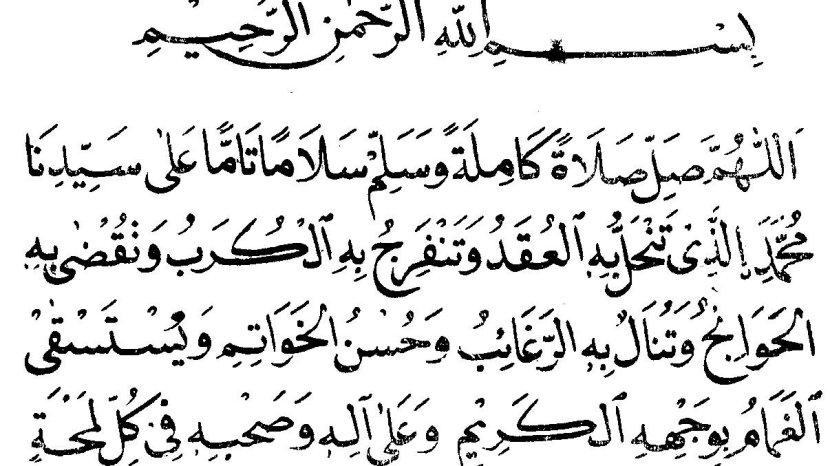 بِسْمِ اللّٰهِ الرَّحْمٰنِ الرَّحِيْمِ
اَللّٰهُمَّ صَلِّ صَلَاةً كَامِلَةً وَسَلِّمْ سَلَامًا تَامًّا عَلٰى سَيِّدِنَا
مُحَمَّدِ ࣙالَّذِىْ تَنْحَلُّ بِهِ الْعُقَدُ وَتَنْفَرِجُ بِهِ الْكُرَبُ وَتُقْضٰى بِهِ
الْحَوَائِجُ وَتُنَالُ بِهِ الرَّغَائِبُ وَحُسْنُ الْخَوَاتِمِ وَيُسْتَسْقٰى
الْغَمَامُ بِوَجْهِهِ الْكَرِيْمِ وَعَلٰى آلِهِ وَصَحْبِهِ فِىْ كُلِّ لَمْحَةٍ